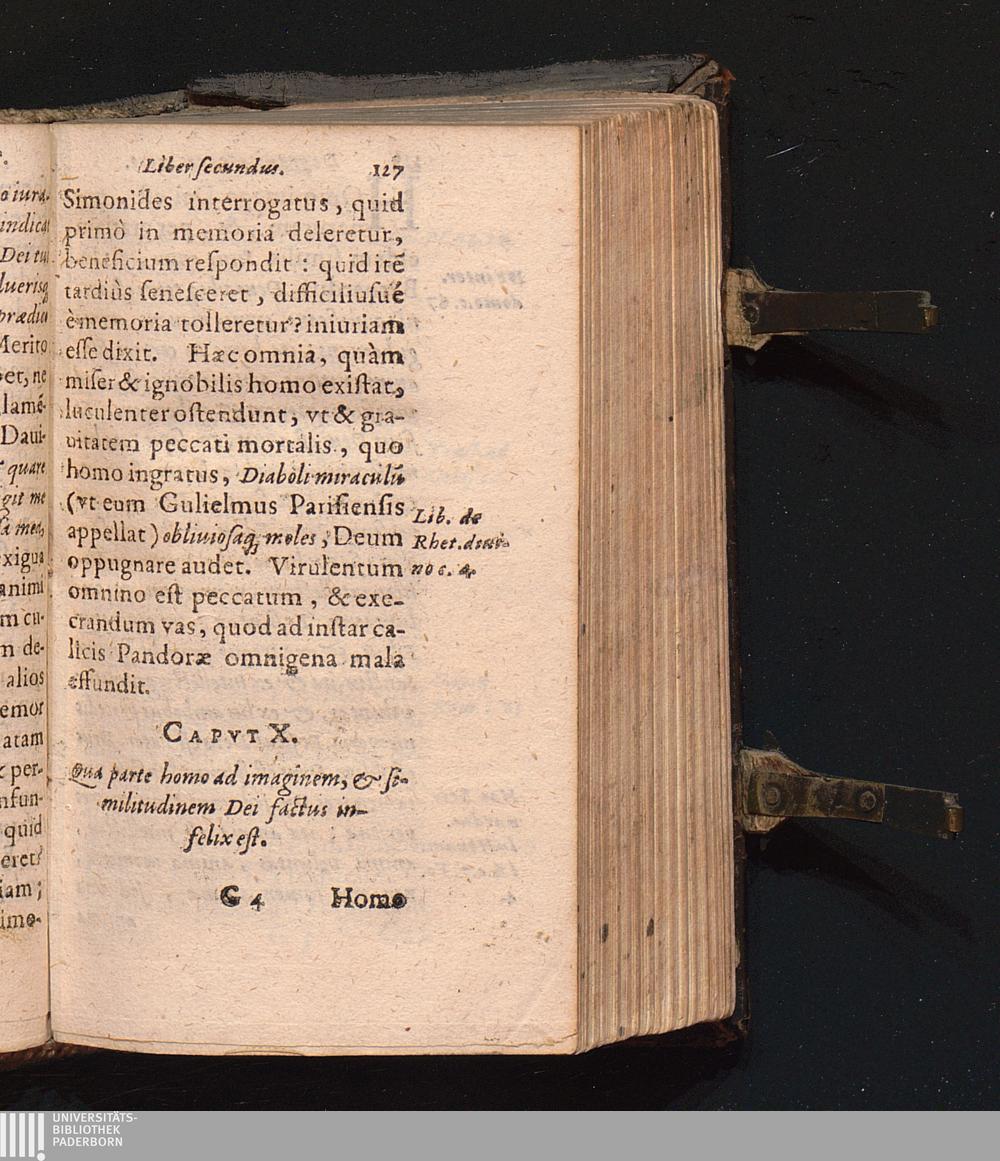 Liber secundus. 127
Simonides interrogatus, quid
primò in memoria deleretur,
beneficium respondit : quid itẽ
tardiùs senesceret, difficiliusué
è memoria tolleretur? iniuriam
esse dixit. Hæc omnia, quàm
miser & ignobilis homo existat,
luculenter ostendunt, vt & gra-
uitatem peccati mortalis, quo
homo ingratus, Diaboli miraculũ
(vt eum Gulielmus Parisiensis
appellat) obliuiosaq; moles, Deum
oppugnare audet. Virulentum
omnino est peccatum, & exe-
crandum vas, quod ad instar ca-
licis Pandoræ omnigena mala
effundit.
Lib. de
Rhet. diui-
no c. 4.
CAPVT X.
Qua parte homo ad imaginem, & si-
militudinem Dei factus in-
felix est.
G 4 Homo
o iura-
indica
Dei tui
luerisq
prædiu
Merito
et, ne
lamé-
Daui-
quare
git me
sa mea,
xigua
animi
m cu-
m de-
alios
emor
atam
per-
nfun-
quid
eret?
iam;
imo-
UNIVERSITÄTS-
BIBLIOTHEK
PADERBORN